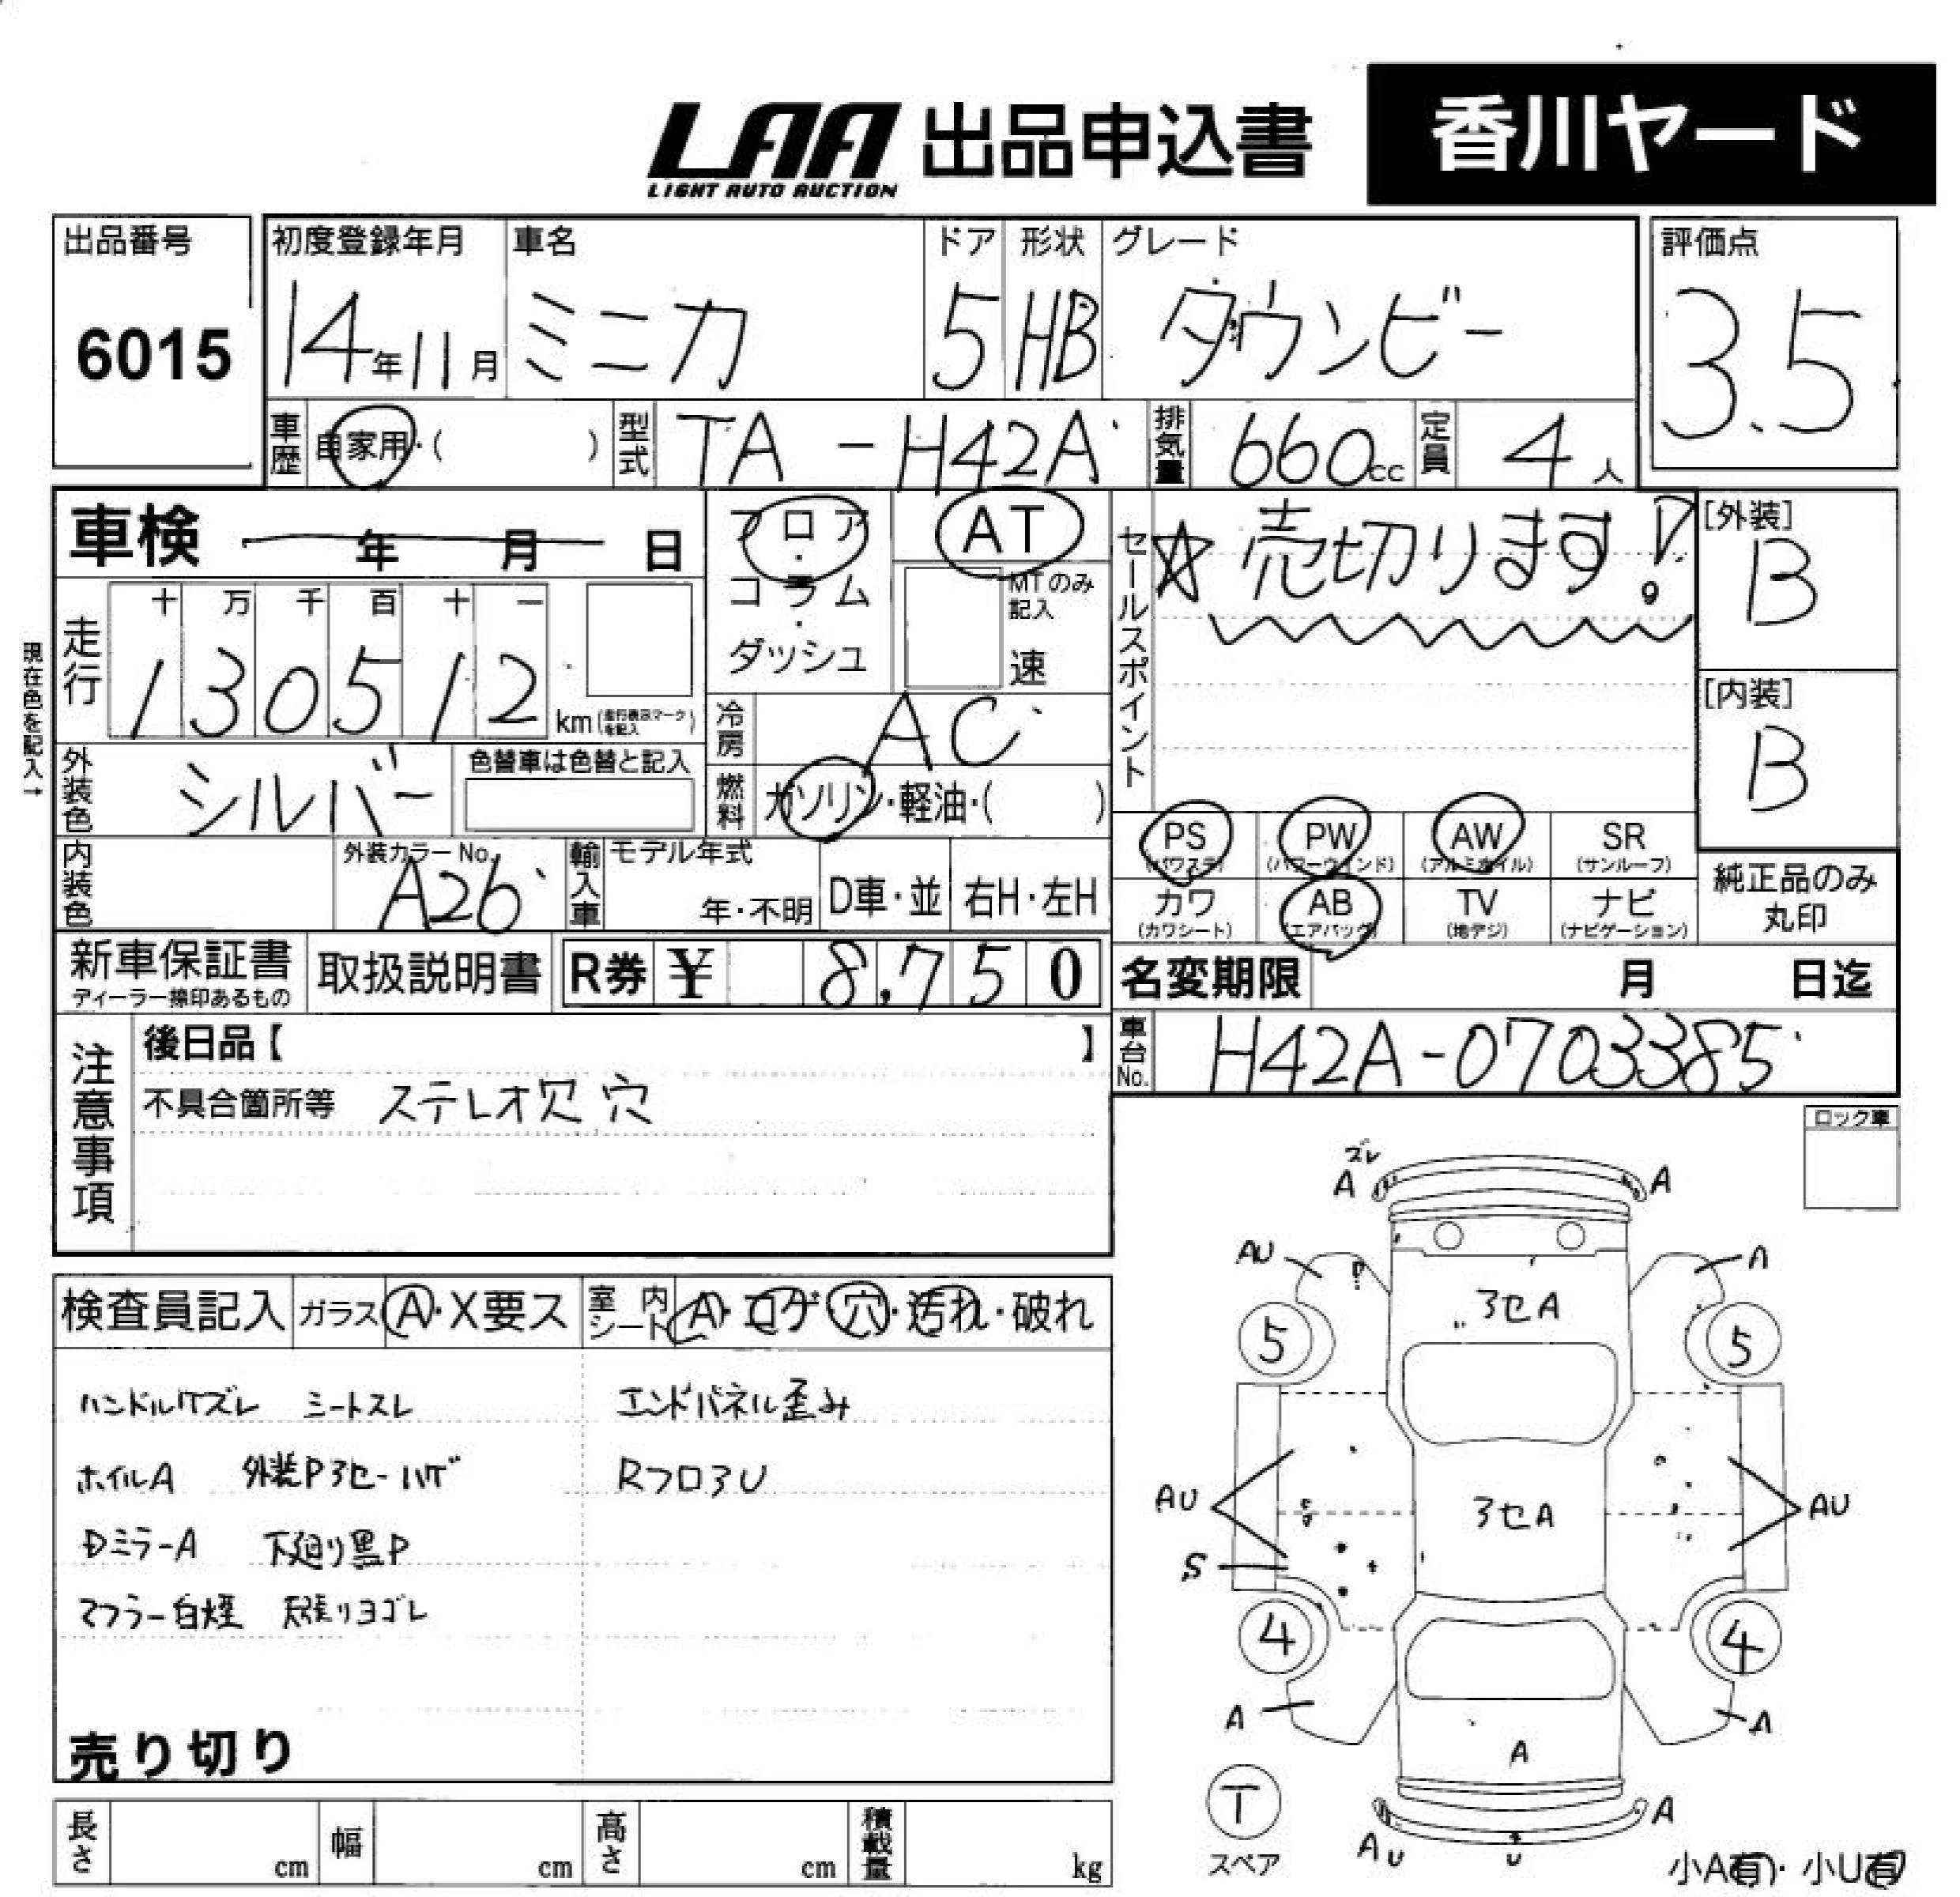 LAA 出品申込書 香川ヤード
LIGHT AUTO AUCTION
出品番号 初度登録年月 車名 ドア 形状 グレード 評価点
6015 14年11月 ミニカ 5 HB ダウンビー 3.5
車歴 自家用・( ) 型式 TA-H42A 排気量 660cc 定員 4人
車検 年 月 日 フロア・コラム・ダッシュ AT
MTのみ記入 速
セールスポイント ☆売切ります!
[外装] B
走行 十 万 千 百 十 一
130512 km (走行表示マークを記入)
現在色を記入→
冷房 AC
[内装] B
外装色 シルバー 色替車は色替と記入 燃料 ガソリン・軽油・( )
PS (パワステ) PW (パワーウィンド) AW (アルミホイル) SR (サンルーフ)
内装色 外装カラーNo. A26 輸入車 モデル年式 年・不明 D車・並 右H・左H
カワ (カワシート) AB (エアバッグ) TV (地デジ) ナビ (ナビゲーション)
純正品のみ丸印
新車保証書 ディーラー捺印あるもの 取扱説明書 R券 ¥ 8,750 名変期限 月 日迄
車台No. H42A-0703385
注意事項 後日品【 】
不具合箇所等 ステレオ欠 穴
ロック車
検査員記入 ガラス A・X要ス 室内シート A・コゲ・穴・汚れ・破れ
ハンドルスレ シートスレ エンドパネル歪み
ホイルA 外装Pヨセーハゲ RフロアU
Dミラー A 下廻り黒P
マフラー白煙 天張リヨゴレ
売り切り
ズレ
A A
AU A
ヨセA
5 5
AU ヨセA AU
S
4 4
A A
A
T
スペア
A
AU U
小A有・小U有
長さ cm 幅 cm 高さ cm 積載量 kg